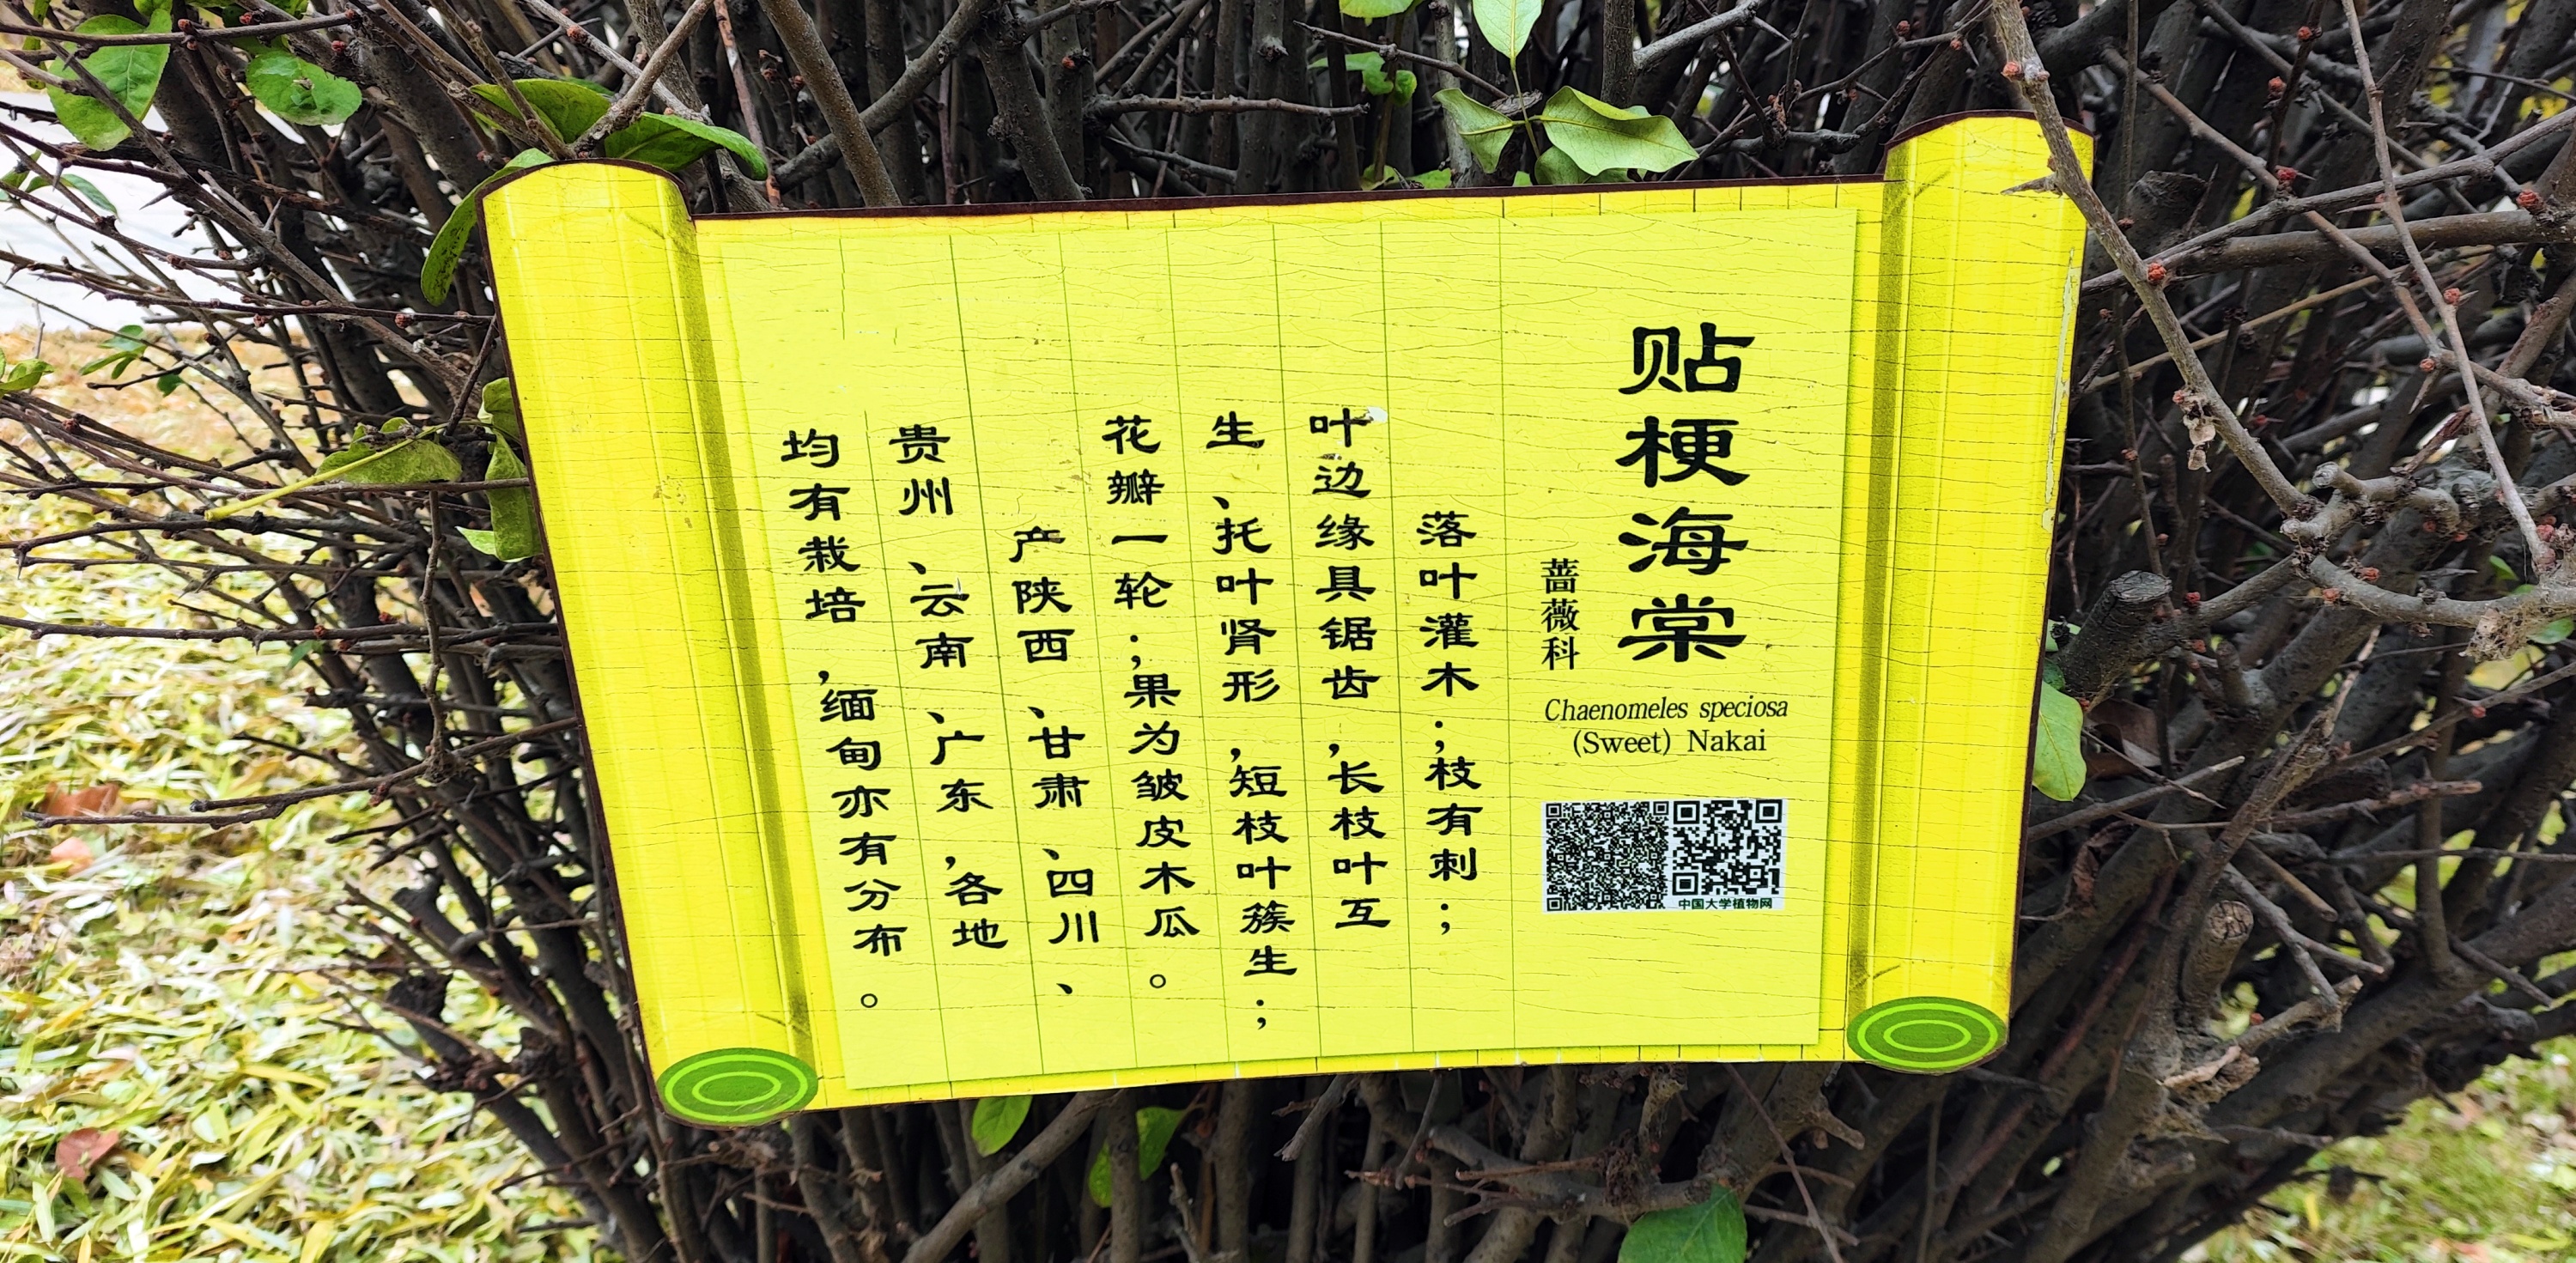 贴梗海棠
蔷薇科
Chaenomeles speciosa
(Sweet) Nakai
中国大学植物网
落叶灌木；枝有刺；
叶边缘具锯齿，长枝叶互
生、托叶肾形，短枝叶簇生；
花瓣一轮；果为皱皮木瓜。
产陕西、甘肃、四川、
贵州、云南、广东，各地
均有栽培，缅甸亦有分布。